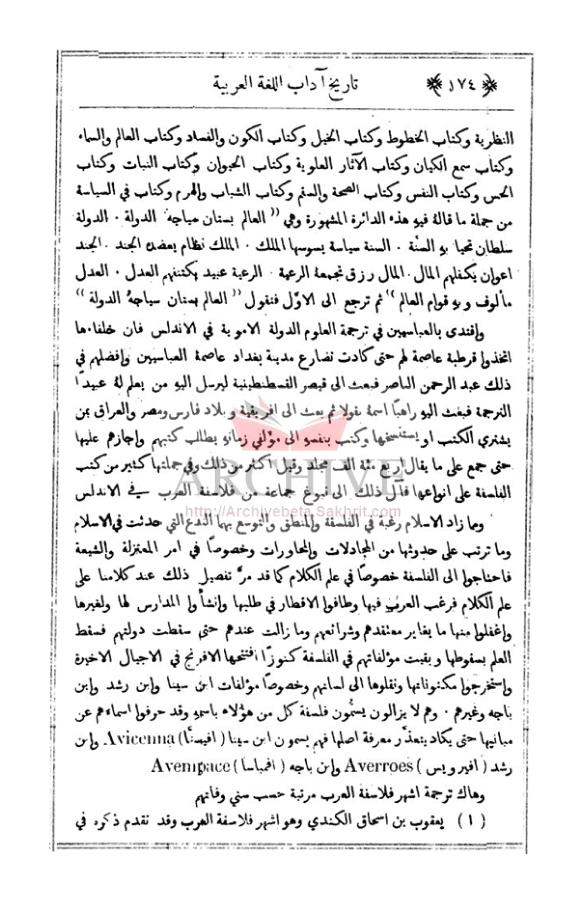 ﴿ ١٧٤ ﴾ تاريخ آداب اللغة العربية
النظرية وكتاب الخطوط وكتاب الحيل وكتاب الكون والفساد وكتاب العالم والسماء
وكتاب سمع الكيان وكتاب الآثار العلوية وكتاب الحيوان وكتاب النبات وكتاب
الحس وكتاب النفس وكتاب الصحة والسقم وكتاب الشباب والهرم وكتاب في السياسة
من جملة ما قالهُ فيهِ هذه الدائرة المشهورة وهي " العالم بستان سياجهُ الدولة ٠ الدولة
سلطان تحيا بهِ السنَّة ٠ السنة سياسة يسوسها الملك ٠ الملك نظام يعضدهُ الجند ٠ الجند
اعوان يكفلهم المال ٠ المال رزق تجمعهُ الرعية ٠ الرعية عبيد يكتنفهم العدل ٠ العدل
مألوف وبهِ قوام العالم " ثم ترجع الى الاوَّل فتقول " العالم بستان سياجهُ الدولة "
واقتدى بالعباسيين في ترجمة العلوم الدولة الاموية في الاندلس فان خلفاءها
اتخذوا قرطبة عاصمة لهم حتى كادت تضارع مدينة بغداد عاصمة العباسيين وافضلهم في
ذلك عبد الرحمن الناصر فبعث الى قيصر القسطنطينية ليرسل اليهِ من يعلم لهُ عبيدًا
الترجمة فبعث اليهِ راهبًا اسمهُ نقولا ثم بعث الى افريقية وبلاد فارس ومصر والعراق من
يشتري الكتب او يستنسخها وكتب بنفسهِ الى مؤلفي زمانهِ يطلب كتبهم واجازهم عليها
حتى جمع على ما يقال اربع مئة الف مجلد وقيل اكثر من ذلك وفي جملتها كثير من كتب
الفلسفة على انواعها فآل ذلك الى نبوغ جماعة من فلاسفة العرب في الاندلس
ومما زاد الاسلام رغبة في الفلسفة والمنطق والتوسع بهما البدع التي حدثت في الاسلام
وما ترتب على حدوثها من المجادلات والمحاورات وخصوصًا في امر المعتزلة والشيعة
فاحتاجوا الى الفلسفة خصوصًا في علم الكلام كما قد مرَّ تفصيل ذلك عند كلامنا على
علم الكلام فرغب العرب فيها وطافوا الاقطار في طلبها وانشأوا المدارس لها ولغيرها
واغفلوا منها ما يغاير معتقدهم وشرائعهم وما زالت عندهم حتى سقطت دولتهم فسقط
العلم بسقوطها وبقيت مؤلفاتهم في الفلسفة كنوزًا افتتحها الافرنج في الاجيال الاخيرة
واستخرجوا مكنوناتها ونقلوها الى لسانهم وخصوصًا مؤلفات ابن سينا وابن رشد وابن
باجه وغيرهم ٠ وهم لا يزالون يسمُّون فلسفة كل من هؤلاء باسمهِ وقد حرفوا اسماءهم عن
مبانيها حتى يكاد يتعذَّر معرفة اصلها فهم يسمون ابن سينا ( افيسنَّا ) Avicenna وابن
رشد ( افيرويس ) Averroes وابن باجه ( افمباسا ) Avempace
وهاك ترجمة اشهر فلاسفة العرب مرتبة حسب سني وفاتهم
( ١ ) يعقوب بن اسحاق الكندي وهو اشهر فلاسفة العرب وقد تقدم ذكره في
ARCHIVE
http://Archivebeta.Sakhrit.com